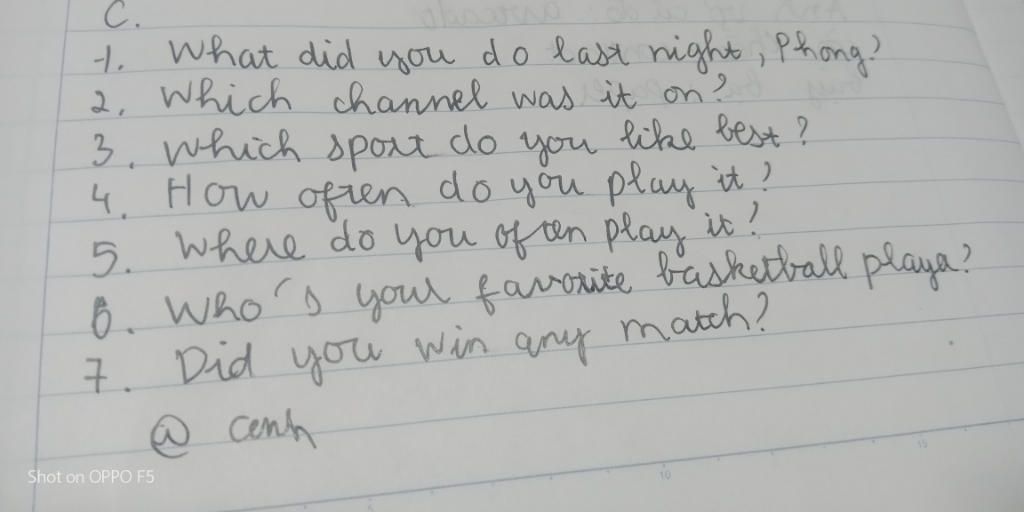 C.
1. What did you do last night, Phong?
2. Which channel was it on?
3. Which sport do you like best?
4. How often do you play it?
5. Where do you often play it?
6. Who's your favorite basketball playa?
7. Did you win any match?
@ cenh
Shot on OPPO F5
10
15